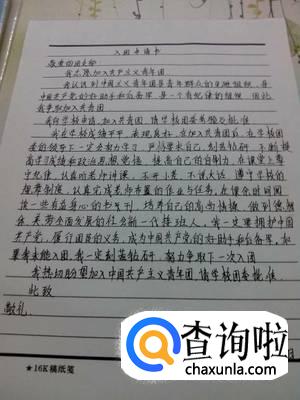 入团申请书
敬爱的团支部:
我志愿加入共产主义青年团
我认识到中国主义青年团是青年群众的先进组织,是
中国共产党的好助手和后备军,是一个有纪律的组织,因此
我争取加入共青团
我向学校申请,加入共青团,请学校团委考验及批准
我在学校成绩平平,表现良好,在加入共青团后,在学校团
委的领导下一定会努力学习,严格要求自己,刻苦钻研,不断提
高学习成绩和政治思想觉悟,
守纪律,认真听老师讲课,不开小差,不讲大话,遵守学校的
规章制度,认真完成老师布置的作业与任务,在课余时间阅
读一些有益身心的书刊,培养自己的高尚情操,做到德、智、
体、美、劳全面发展的社会新一代接班人,我一定要拥护中国
共产党,履行团员的义务,成为中国共产党的好助手和后备军,如
果我未能入团,我一定刻苦钻研,努力争取下一次入团
我热切盼望加入中国共产主义青年团,请学校团委批准
此致
敬礼
★16K稿纸笺
查询啦
chaxunla.com